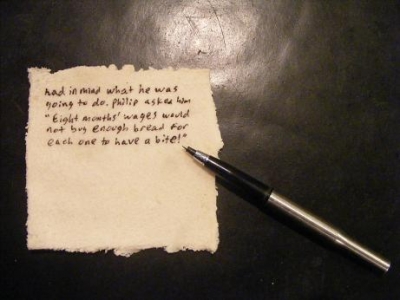 had in mind what he was
going to do. Philip asked him
"Eight months' wages would
not buy enough bread for
each one to have a bite!"